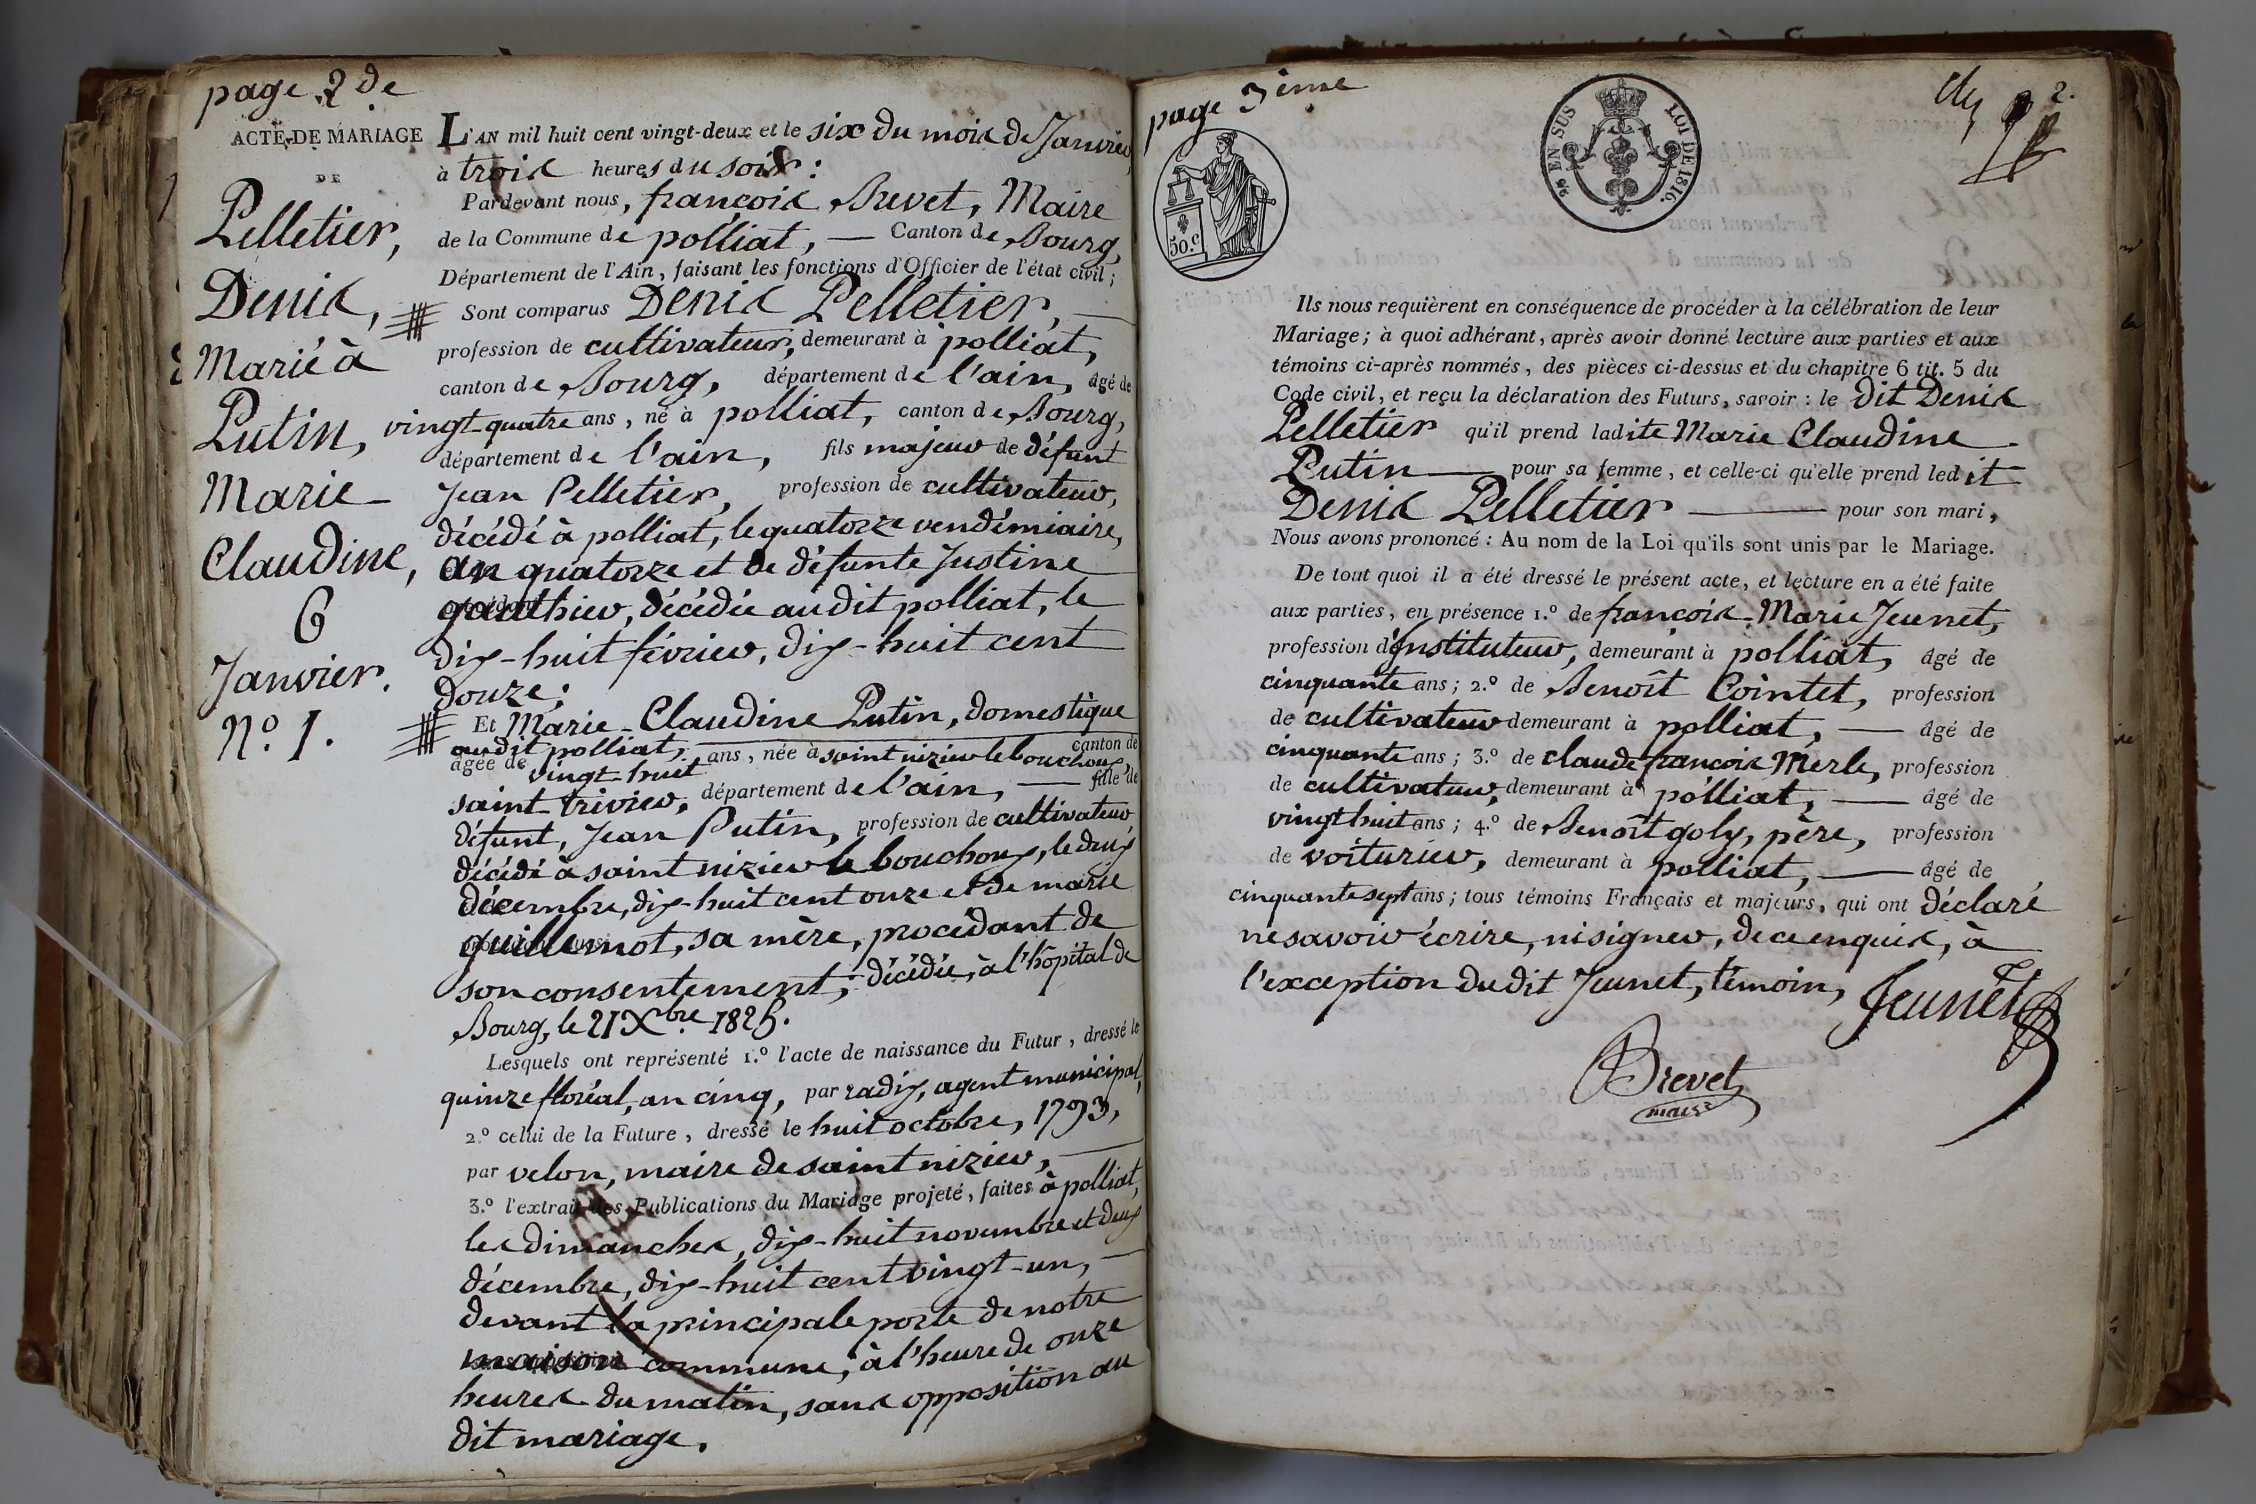 page 2de
ACTE DE MARIAGE
DE
Pelletier,
Denis,
Marié à
Putin,
Marie-
Claudine,
6
Janvier.
N.o 1.
L'AN mil huit cent vingt-deux et le six du mois de Janvier,
à trois heures du soir :
Pardevant nous, françois Brevet, Maire
de la Commune de polliat, — Canton de Bourg,
Département de l'Ain, faisant les fonctions d'Officier de l'état civil ;
Sont comparus Denis Pelletier, —
profession de cultivateur, demeurant à polliat,
canton de Bourg, département de l'ain, âgé de
vingt-quatre ans, né à polliat, canton de Bourg,
département de l'ain, fils majeur de défunt
Jean Pelletier, profession de cultivateur,
décédé à polliat, le quatorze vendémiaire,
an quatorze et de défunte Justine
gauthier, décédée audit polliat, le
dix-huit février, dix-huit cent
douze ;
Et Marie-Claudine Putin, domestique
audit polliat, —
âgée de vingt-huit ans, née à saint nizier le bouchoux, canton de
saint-trivier, département de l'ain, — fille de
défunt, Jean Putin, profession de cultivateur
décédé à saint nizier le bouchoux, le deux
décembre, dix-huit cent onze et de marie
guillemot, sa mère, procédant de
son consentement, ; décédée, à l'hôpital de
Bourg, le 21 Xbre 1825.
Lesquels ont représenté 1.o l'acte de naissance du Futur, dressé le
quinze floréal, an cinq, par radix, agent municipal,
2.o celui de la Future, dressé le huit octobre, 1793,
par velon, maire de saint nizier, —
3.o l'extrait des Publications du Mariage projeté, faites à polliat,
les dimanches, dix-huit novembre et deux
décembre, dix-huit cent vingt-un, —
devant la principale porte de notre
maison commune, à l'heure de onze
heures du matin, sans opposition au
dit mariage.
page 3ième
50.c
25 EN SUS LOI DE 1816.
2.
Ils nous requièrent en conséquence de procéder à la célébration de leur
Mariage ; à quoi adhérant, après avoir donné lecture aux parties et aux
témoins ci-après nommés, des pièces ci-dessus et du chapitre 6 tit. 5 du
Code civil, et reçu la déclaration des Futurs, savoir : le dit Denis
Pelletier qu'il prend ladite Marie Claudine
Putin — pour sa femme, et celle-ci qu'elle prend ledit
Denis Pelletier — pour son mari,
Nous avons prononcé : Au nom de la Loi qu'ils sont unis par le Mariage.
De tout quoi il a été dressé le présent acte, et lecture en a été faite
aux parties, en présence 1.o de françois-Marie Jeunet,
profession d'instituteur, demeurant à polliat, âgé de
cinquante ans ; 2.o de Benoît Cointet, profession
de cultivateur demeurant à polliat, — âgé de
cinquante ans ; 3.o de claude françois Merle, profession
de cultivateur, demeurant à polliat, — âgé de
vingt huit ans ; 4.o de Benoît goly, père, profession
de voiturier, demeurant à polliat, — âgé de
cinquante sept ans ; tous témoins Français et majeurs, qui ont déclaré
ne savoir écrire, ni signer, de ce enquis, à
l'exception du dit Jeunet, témoin, Jeunet
Brevet
maire